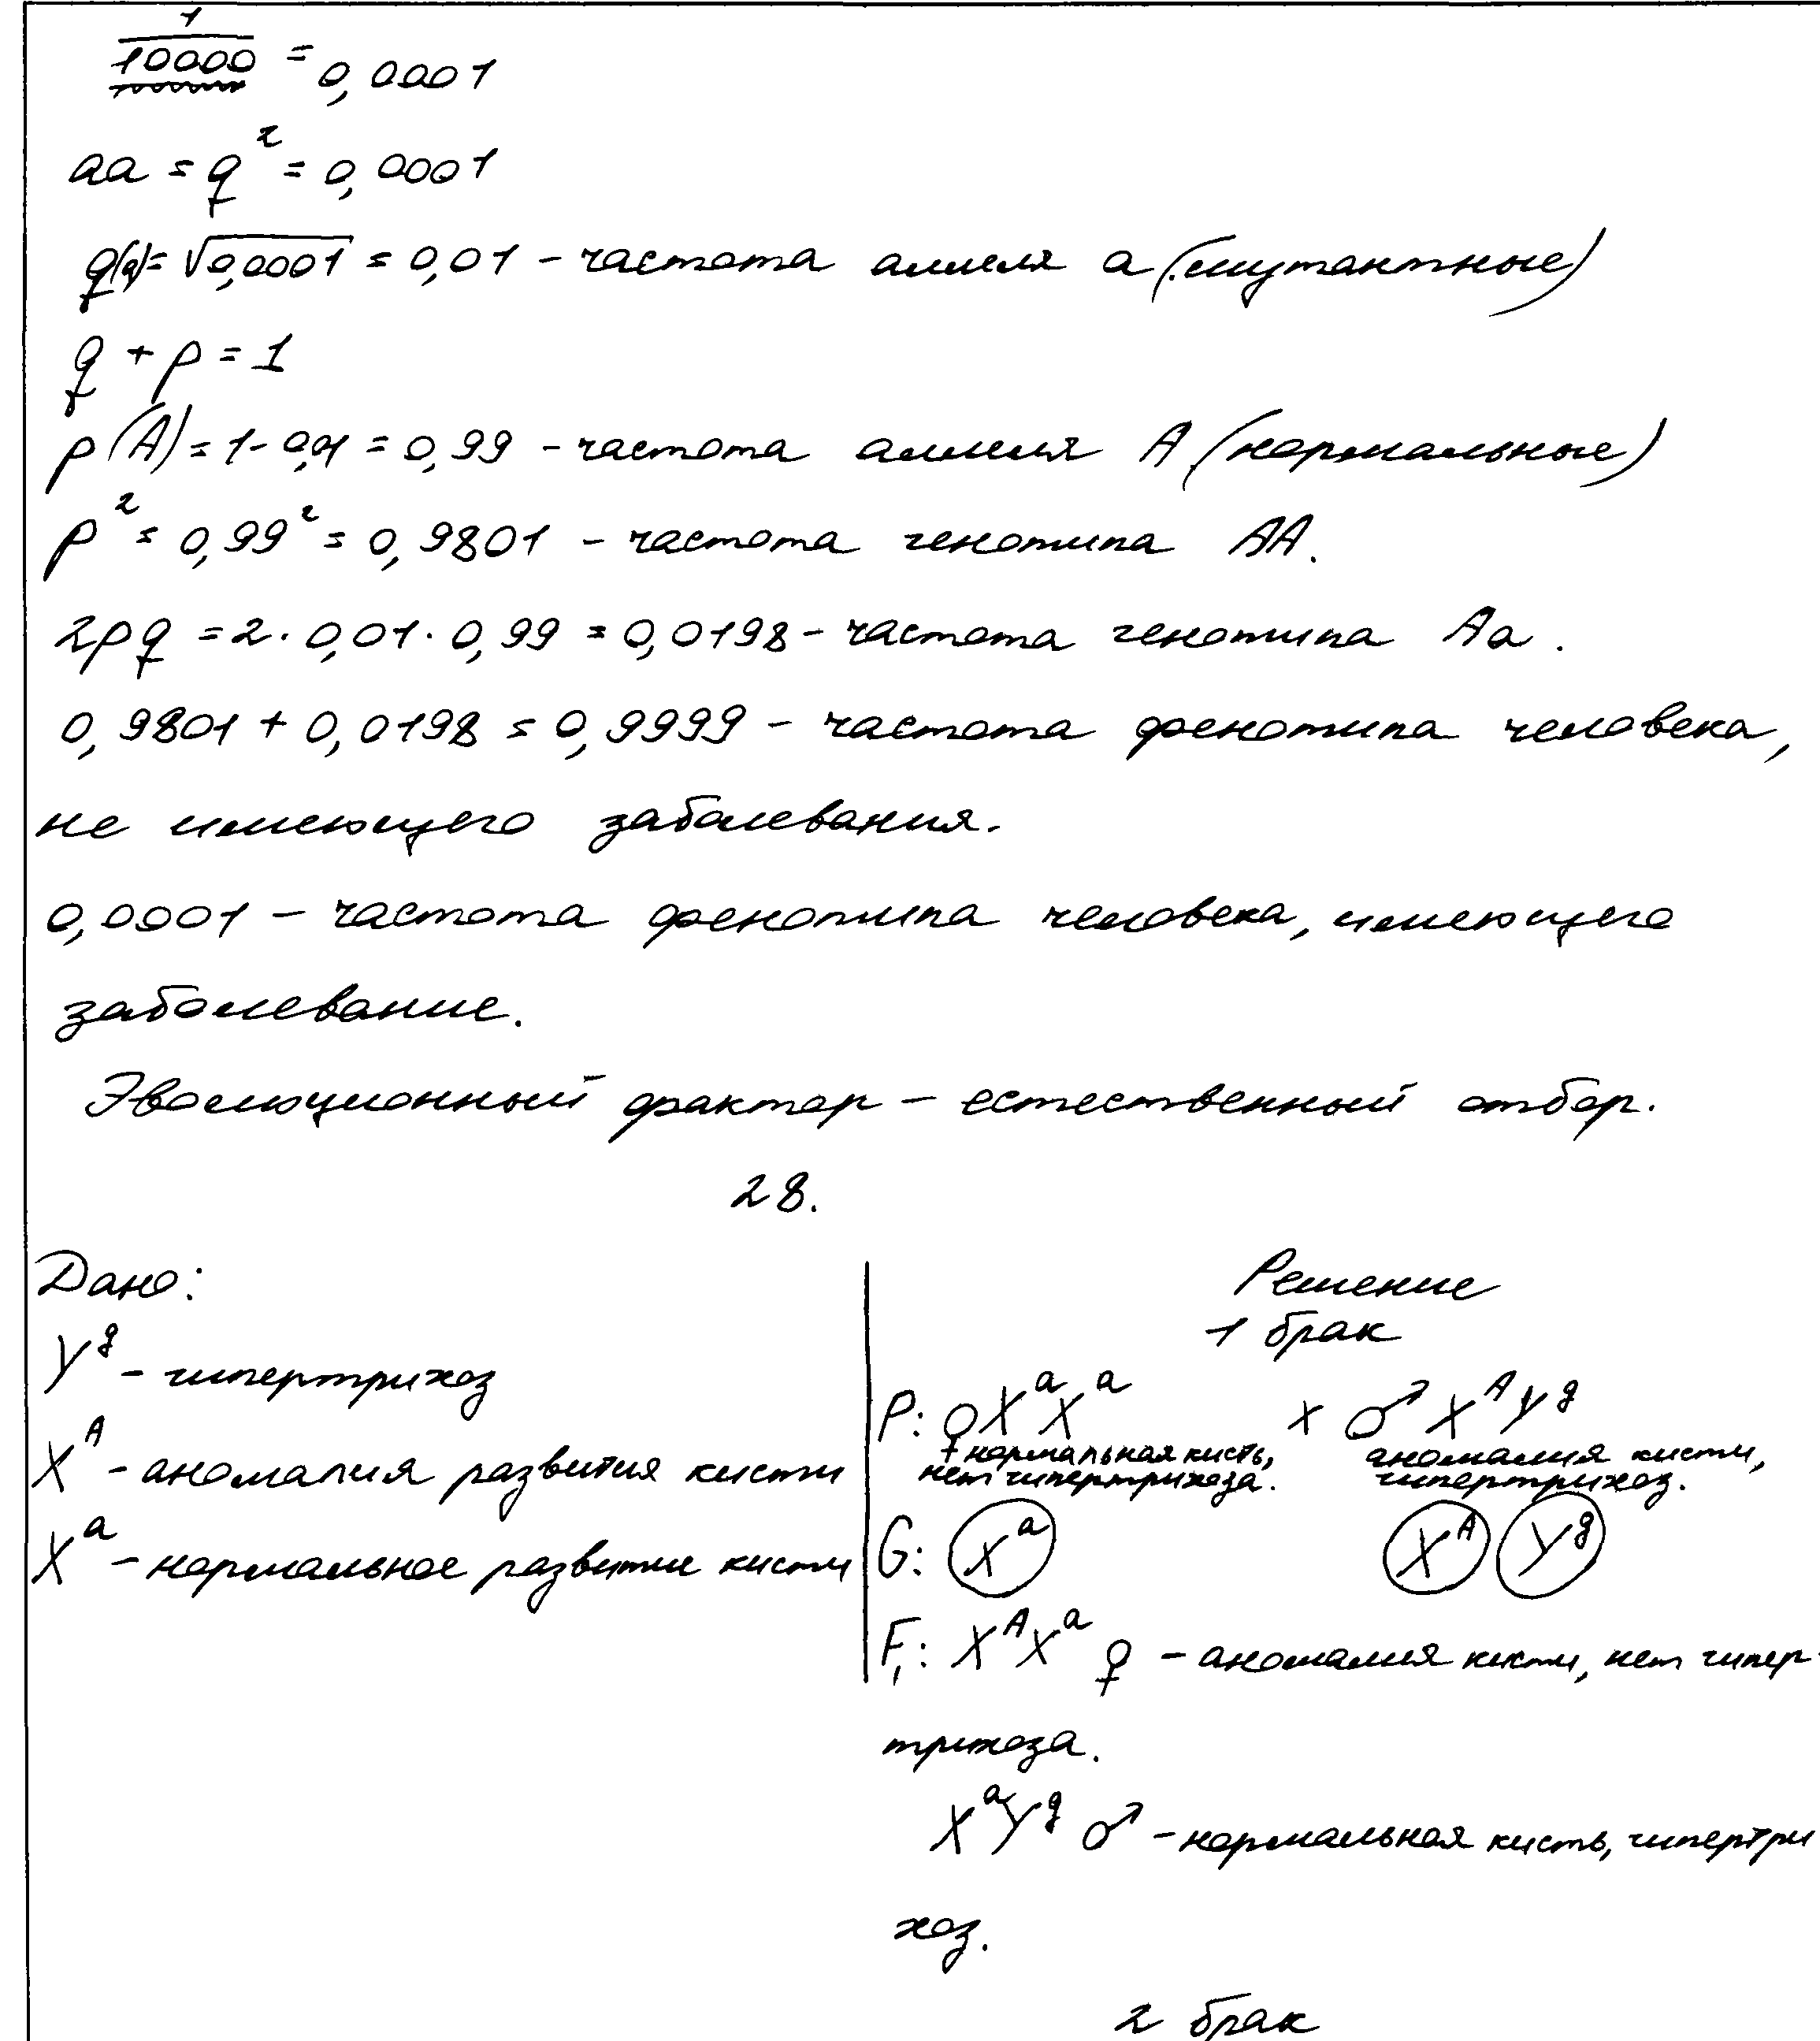 1/10000 = 0,0001
aa = q² = 0,0001
q(a) = √0,0001 = 0,01 - частота аллеля a (мутантные)
q + p = 1
p(A) = 1 - 0,01 = 0,99 - частота аллеля A (нормальные)
p² = 0,99² = 0,9801 - частота генотипа AA.
2pq = 2 · 0,01 · 0,99 = 0,0198 - частота генотипа Aa.
0,9801 + 0,0198 = 0,9999 - частота фенотипа человека,
не имеющего заболевания.
0,0001 - частота фенотипа человека, имеющего
заболевание.
Эволюционный фактор - естественный отбор.
28.
Дано:
Y^g - гипертрихоз
X^A - аномалия развития кисти
X^a - нормальное развитие кисти
Решение
1 брак
P: ♀ X^a X^a x ♂ X^A Y^g
нормальная кисть, аномалия кисти,
нет гипертрихоза. гипертрихоз.
G: X^a X^A Y^g
F₁: X^A X^a ♀ - аномалия кисти, нет гипер-
трихоза.
X^a Y^g ♂ - нормальная кисть, гипертри
хоз.
2 брак